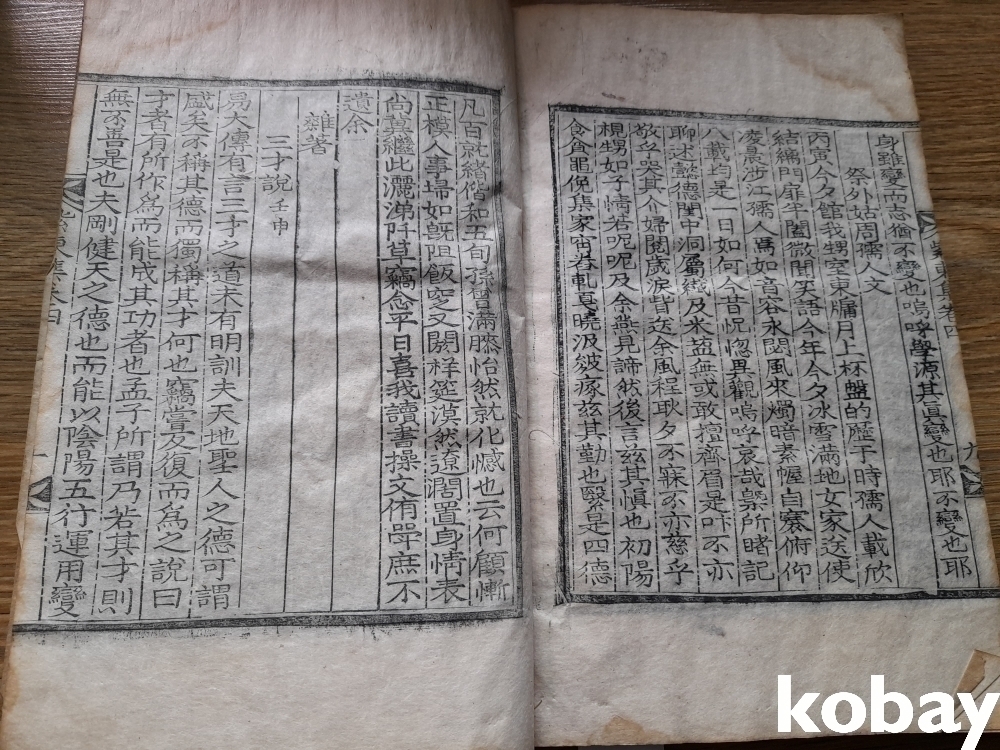 身雖變而志猶不變也嗚呼學源其眞變也耶不變也耶
祭外姑周孺人文
丙寅今夕館我甥室東牖月上杯盤的歷于時孺人載欣
結縭門扉半闔微聞笑語今年今夕冰雪滿地女家送使
凌晨涉江孺人焉如音容永閟風來燭暗素幄自褰俯仰
八載均是一日如何今昔怳惚異觀嗚呼哀哉槩所睹記
聊述懿德閨中洞屬織及米葅無或敢擅齊眉是吁不亦
敬乎突其介婦閱歲淚皆送余風程耿夕不寐不亦慈乎
視甥如子情若呢呢及余燕見諦然後言玆其愼也初陽
食食黽俛集家宙若軋夏曉汲皴瘃玆其勤也繄是四德
紫東集卷四
九
凡百就緖偕和五旬孫曾滿膝怡然就化憾也云何顧慚
正模人事埽如旣阻飯窆又闕祥筵漠然遼濶置身情表
尙冀繼此灑涕阡草竊念平日喜我讀書操文侑學庶不
遺余
雜著
三才說 壬申
易大傳有言三才之道未有明訓夫天地聖人之德可謂
盛矣不稱其德而獨稱其才何也竊嘗反復而爲之說曰
才者有所作爲而能成其功者也孟子所謂乃若其才則
無不善是也夫剛健天之德也而能以陰陽五行運用變
kobay